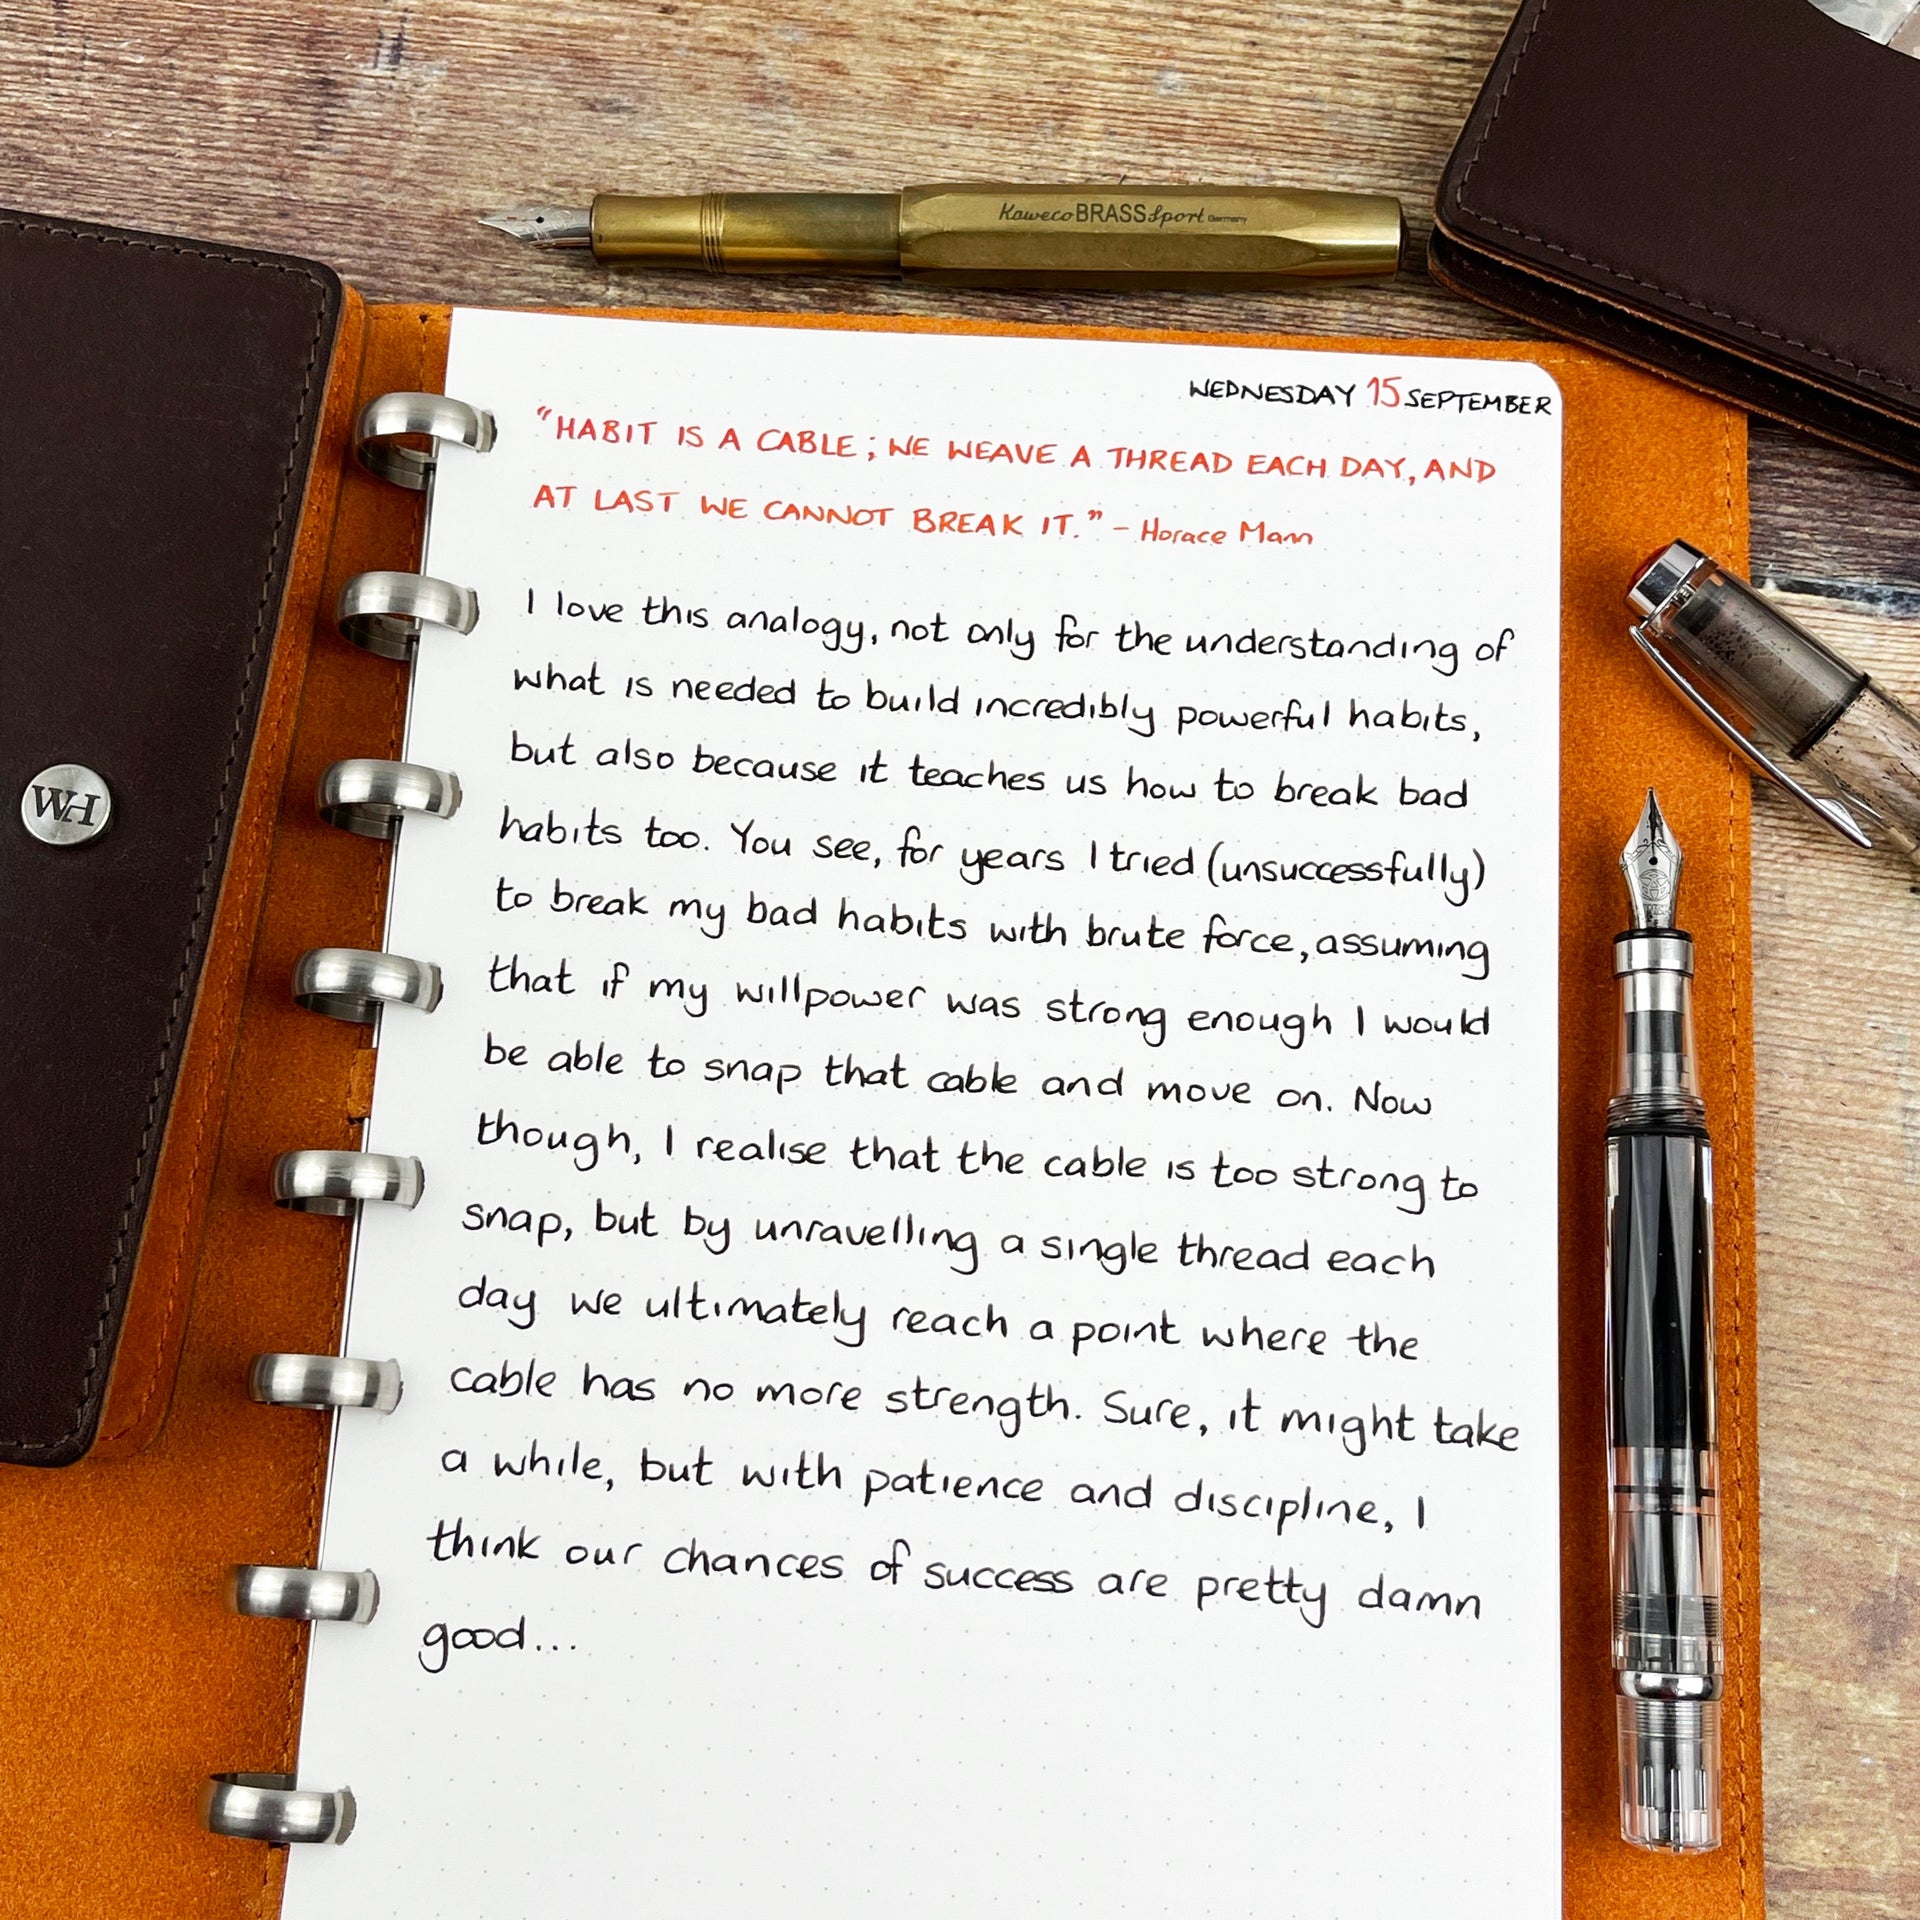 Kaweco BRASS Sport Germany
WEDNESDAY 15 SEPTEMBER
"HABIT IS A CABLE; WE WEAVE A THREAD EACH DAY, AND
AT LAST WE CANNOT BREAK IT." - Horace Mann
I love this analogy, not only for the understanding of
what is needed to build incredibly powerful habits,
but also because it teaches us how to break bad
habits too. You see, for years I tried (unsuccessfully)
to break my bad habits with brute force, assuming
that if my willpower was strong enough I would
be able to snap that cable and move on. Now
though, I realise that the cable is too strong to
snap, but by unravelling a single thread each
day we ultimately reach a point where the
cable has no more strength. Sure, it might take
a while, but with patience and discipline, I
think our chances of success are pretty damn
good...
WH